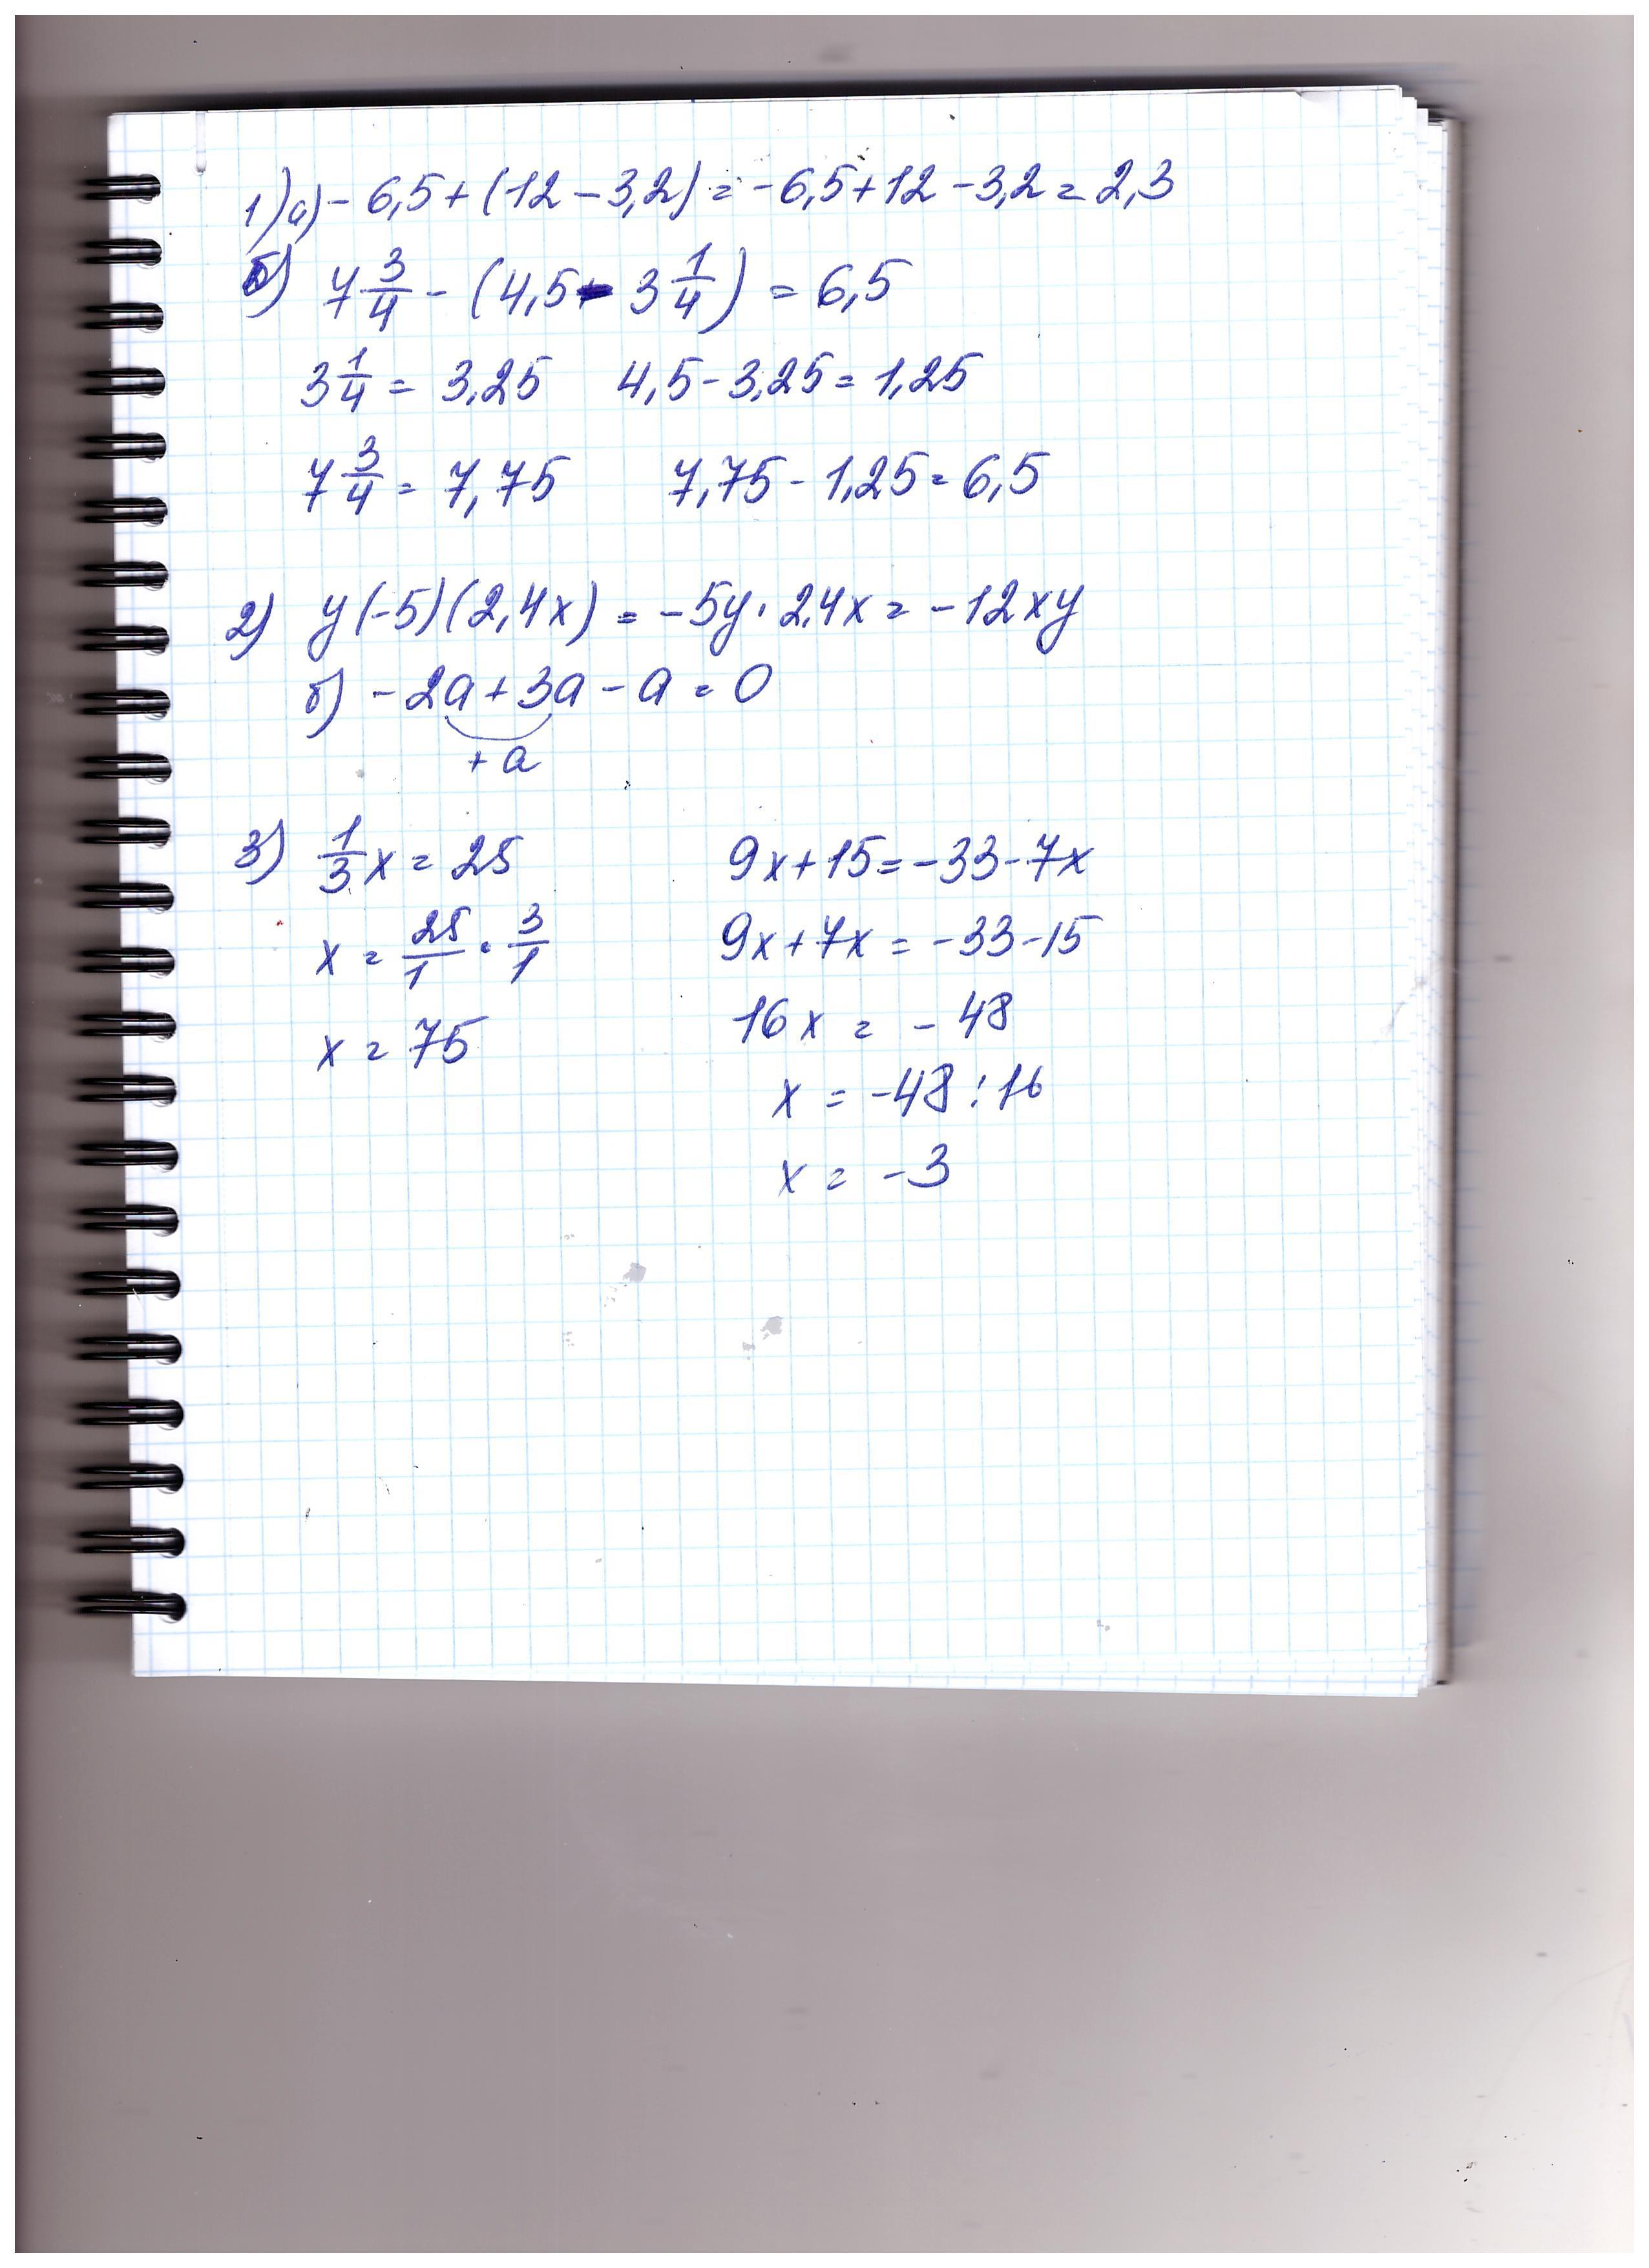 1) а) - 6,5 + (12 - 3,2) = -6,5 + 12 - 3,2 = 2,3
б) 7 3/4 - (4,5 - 3 1/4) = 6,5
3 1/4 = 3,25 4,5 - 3,25 = 1,25
7 3/4 = 7,75 7,75 - 1,25 = 6,5
2) y(-5)(2,4x) = -5y · 2,4x = -12xy
б) -2a + 3a - a = 0
+ a
3) 1/3 x = 25 9x + 15 = -33 - 7x
x = 25/1 · 3/1 9x + 7x = -33 - 15
x = 75 16x = - 48
x = -48 : 16
x = -3